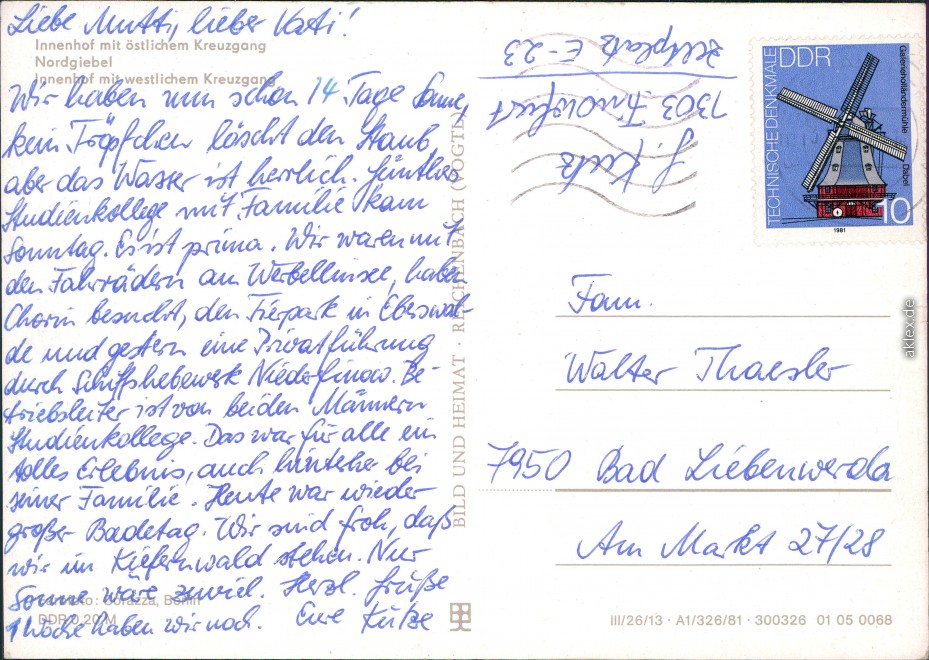 Liebe Mutti, lieber Vati!
Innenhof mit östlichem Kreuzgang
Nordgiebel
Innenhof mit westlichem Kreuzgang
Wir haben nun schon 14 Tage Sonne,
kein Tröpfchen löscht den Staub,
aber das Wasser ist herrlich. Günther
Studienkollege mit Familie kam
Sonntag. Es ist prima. Wir waren mit
den Fahrrädern am Werbellinsee, haben
Chorin besucht, den Tierpark in Eberswal-
de und gestern eine Privatführung
durch Schiffshebewerk Niederfinow. Be-
triebsleiter ist von beiden Männern
Studienkollege. Das war für alle ein
tolles Erlebnis, auch hinterher bei
seiner Familie. Heute war wieder
großer Badetag. Wir sind froh, daß
wir im Kiefernwald stehen. Nur
Sonne wäre zuviel. Herzl. Grüße
1 Woche haben wir noch. Eure Kutze
Berlin
DDR 0,20 M
BILD UND HEIMAT · REICHENBACH (VOGTL)
G. Kutz
1303 Finowfurt
Zeltplatz E-23
TECHNISCHE DENKMALE
DDR
Galerieholländermühle Dabel
10
1981
Fam.
Walter Thaesler
7950 Bad Liebenwerda
Am Markt 27/28
III/26/13 · A1/326/81 · 300326 01 05 0068
aklex.de